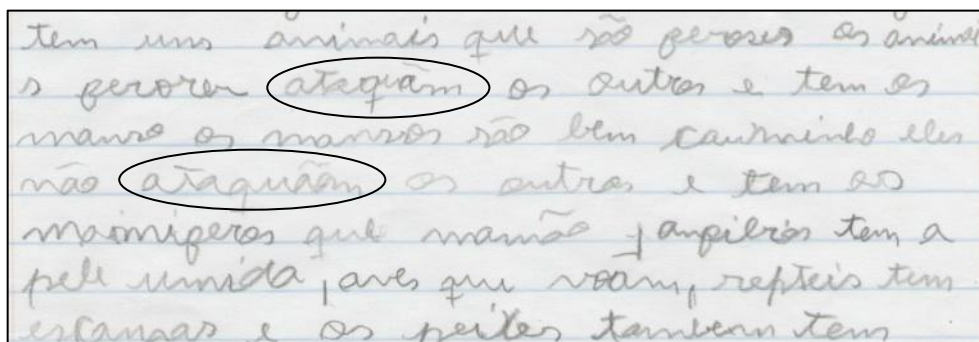 tem uns animais que são feroses os anima
s ferozer ataquãm os outros e tem os
manso os mansos são bem caurminho eles
não ataquãom os outros e tem os
mamiferos que mamão, anfibios tem a
pele umida, aves que voam, repteis tem
escamas e os peixes tambem tem